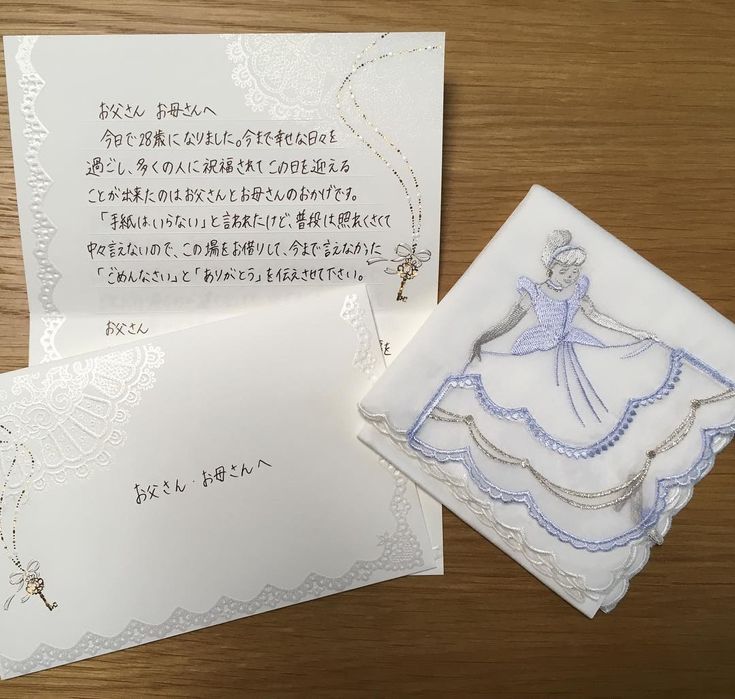 お父さん お母さんへ
今日で28歳になりました。今まで幸せな日々を
過ごし、多くの人に祝福されてこの日を迎える
ことが出来たのはお父さんとお母さんのおかげです。
「手紙はいらない」と言われたけど、普段は照れくさくて
中々言えないので、この場をお借りして、今まで言えなかった
「ごめんなさい」と「ありがとう」を伝えさせて下さい。
お父さん
を
お父さん・お母さんへ